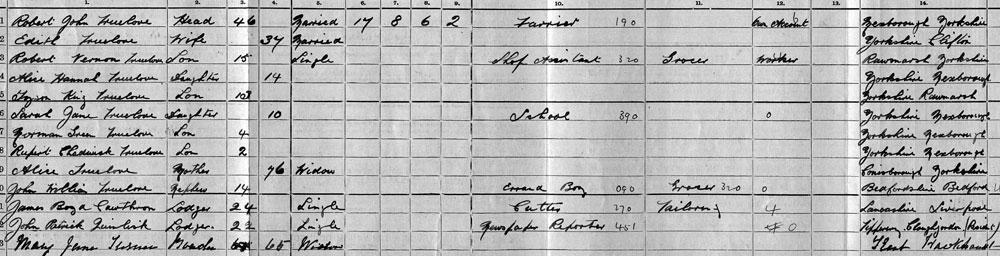 1. 2. 3. 4. 5. 6. 7. 8. 9. 10. 11. 12. 13. 14.
1 Robert John Truelove Head 46 Married 17 8 6 2 Farrier 190 Own Account Mexborough Yorkshire
2 Edith Truelove Wife 37 Married Yorkshire Clifton
3 Robert Vernon Truelove Son 15 Single Shop Assistant 320 Grocer Worker Rawmarsh Yorkshire
4 Alice Hannah Truelove Daughter 14 Yorkshire Mexborough
5 King Truelove Son Yorkshire Rawmarsh
6 Sarah Jane Truelove Daughter 10 School 390 0 Yorkshire Mexborough
7 Norman Green Truelove Son 4 Yorkshire Mexborough
8 Rupert Chadwick Truelove Son 2 Yorkshire Mexborough
9 Alice Truelove Mother 76 Widow Conisborough Yorkshire
0 John William Truelove Nephew 14 Errand Boy 090 Grocer 320 0 Bedfordshire Bedford
1 James Boyd Cawthron Lodger 24 Single Cutter 270 Tailoring 4 Lancashire Liverpool
2 John Patrick Lodger 22 Single Newspaper Reporter 451 0 Cloughjordan (Resident)
3 Mary Jane 65 Widow Kent